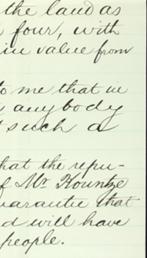 the land as
four, with
in value from
to me that in
anybody
such a
that the repu-
of Mr Kountze
guarantee that
d will have
people.